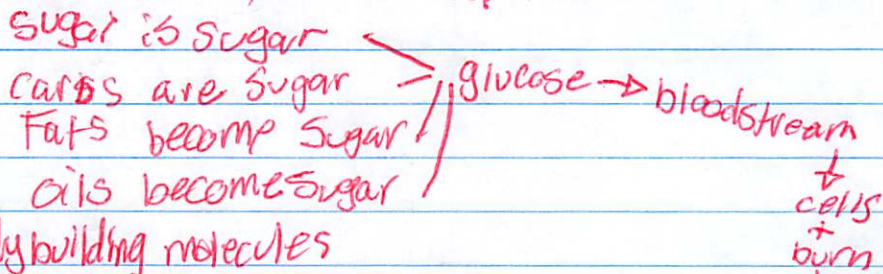 sugar is sugar
carbs are sugar
Fats become sugar
oils become sugar
glucose → bloodstream
↓
cells
+
burn
building molecules